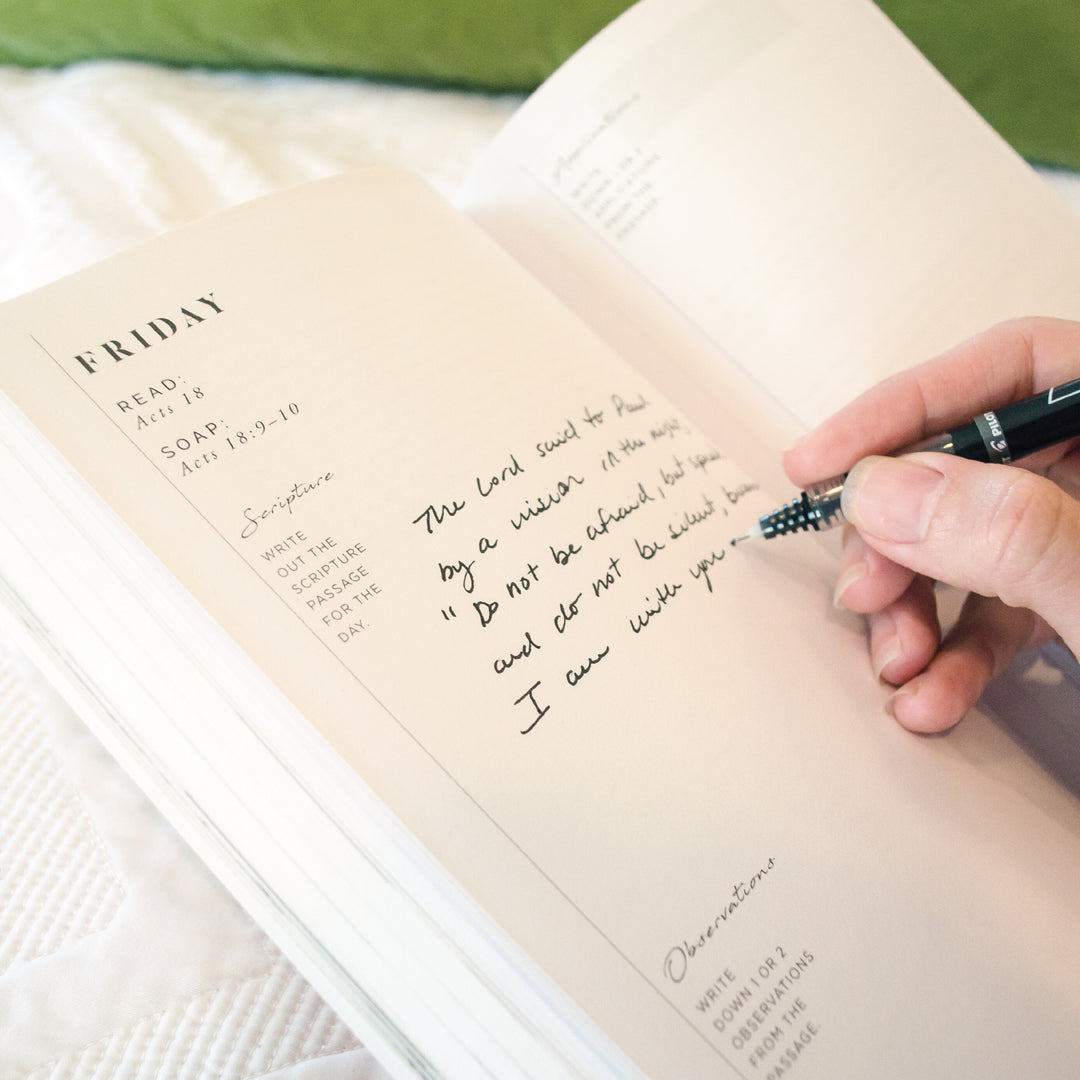 FRIDAY
READ:
Acts 18
SOAP:
Acts 18:9–10
Scripture
WRITE
OUT THE
SCRIPTURE
PASSAGE
FOR THE
DAY.
The Lord said to Paul
by a vision in the night,
"Do not be afraid, but
and do not be silent,
I am with you
Observations
WRITE
DOWN 1 OR 2
OBSERVATIONS
FROM THE
PASSAGE.
Applications
WRITE
DOWN 1 OR 2
APPLICATIONS
FROM THE
PASSAGE
PILOT